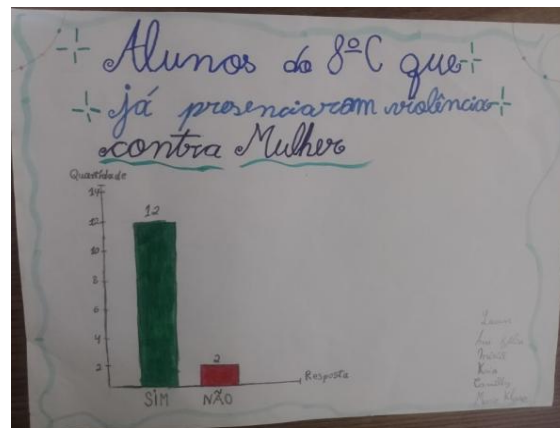 Alunos do 8ºC que
já presenciaram violência
contra Mulher
Quantidade
14
12
12
10
8
6
4
2
2
Resposta
SIM NÃO